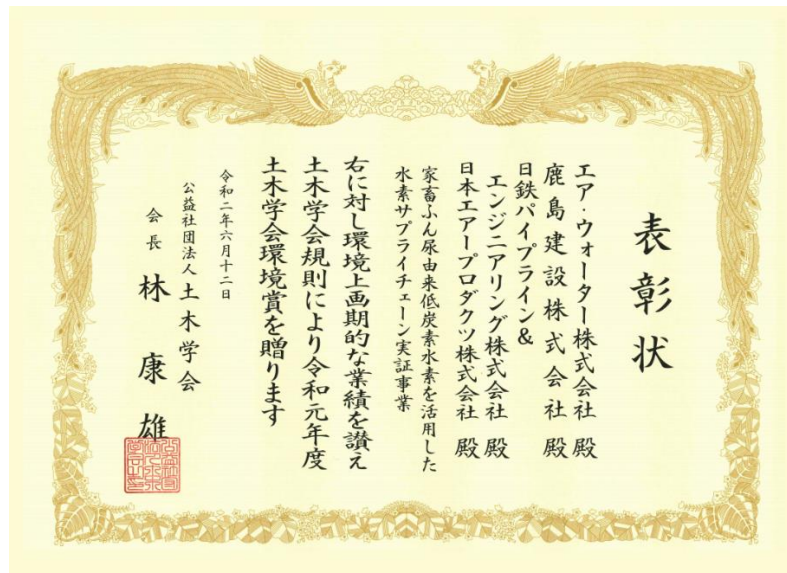 表彰状
エア・ウォーター株式会社 殿
鹿島建設株式会社 殿
日鉄パイプライン&
エンジニアリング株式会社 殿
日本エアープロダクツ株式会社 殿
家畜ふん尿由来低炭素水素を活用した
水素サプライチェーン実証事業
右に対し環境上画期的な業績を讃え
土木学会規則により令和元年度
土木学会環境賞を贈ります
令和二年六月十二日
公益社団法人 土木学会
会長 林康雄